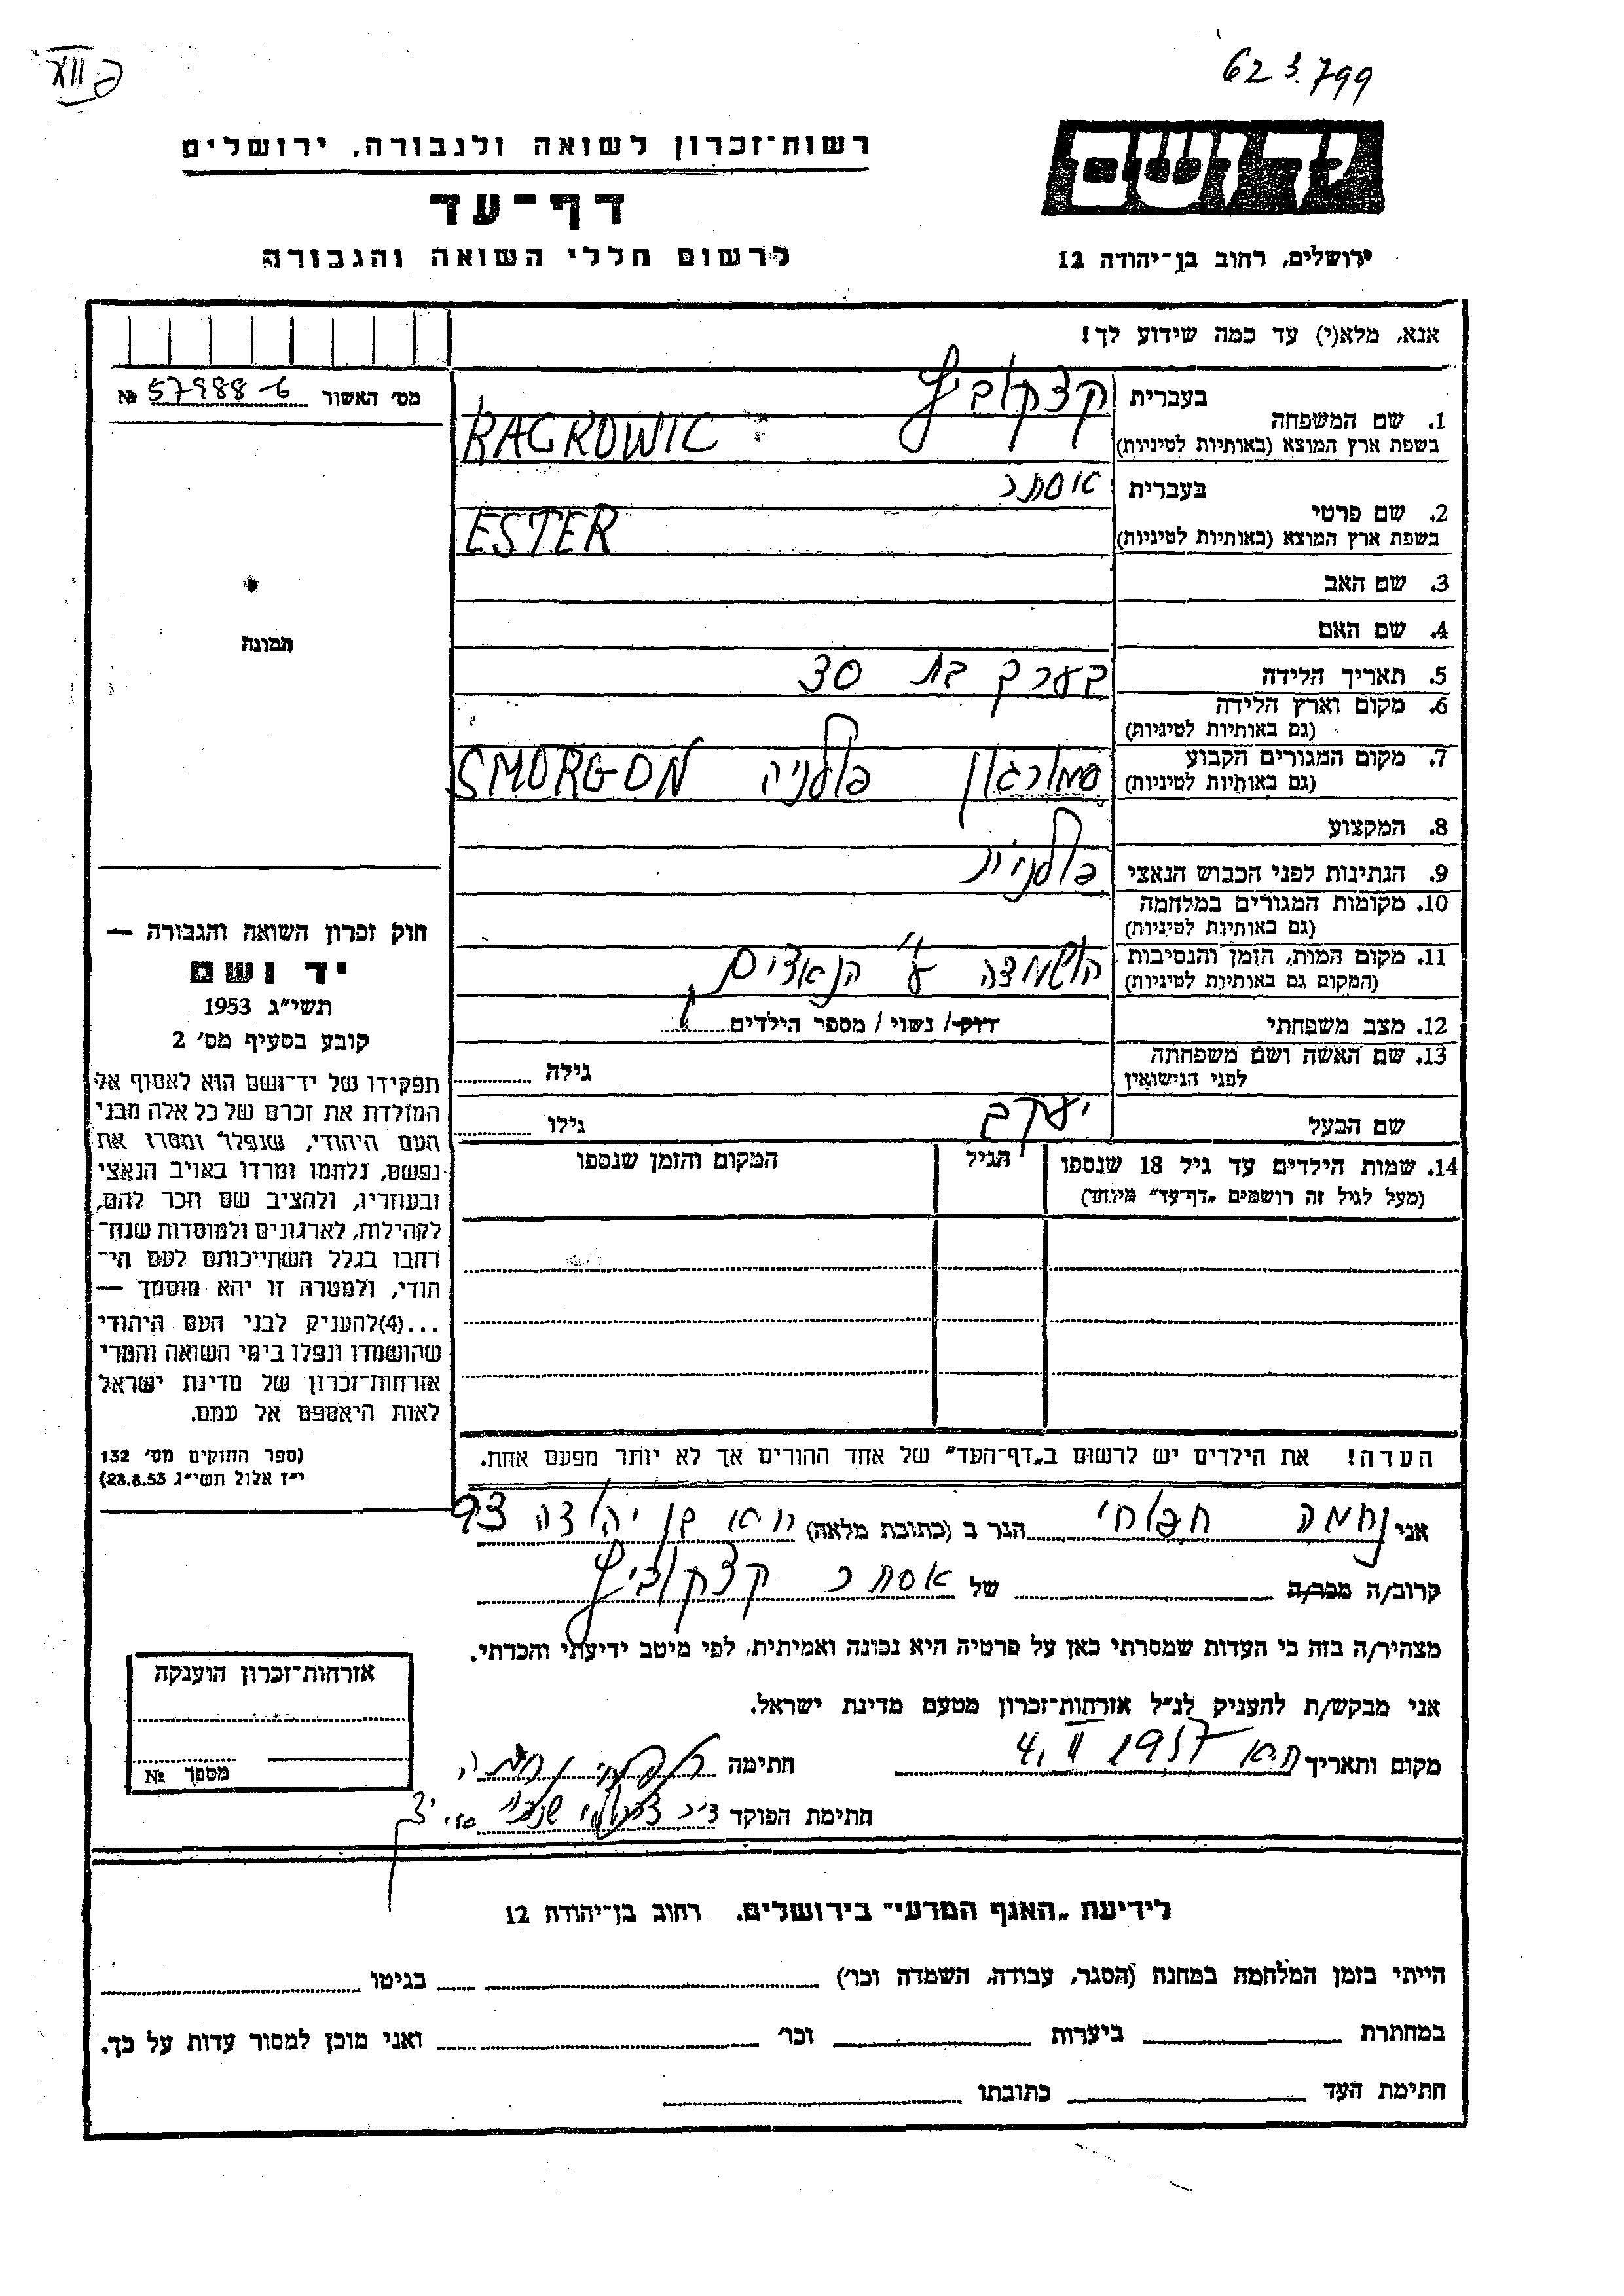 623.799
XII
יד ושם
רשות־זכרון לשואה ולגבורה, ירושלים
דף־עד
לרשום חללי השואה והגבורה
ירושלים, רחוב בן־יהודה 12
אנא, מלא(י) עד כמה שידוע לך!
מס׳ האשור № 57988-6
בעברית קצקוביץ
1. שם המשפחה
בשפת ארץ המוצא (באותיות לטיניות) KACKOWIC
בעברית אסתר
2. שם פרטי
בשפת ארץ המוצא (באותיות לטיניות) ESTER
3. שם האב
4. שם האם
5. תאריך הלידה בערך בת 30
6. מקום וארץ הלידה
(גם באותיות לטיניות)
7. מקום המגורים הקבוע סמורגון פולניה SMORGON
(גם באותיות לטיניות)
8. המקצוע
9. הנתינות לפני הכבוש הנאצי פולנית
10. מקומות המגורים במלחמה
(גם באותיות לטיניות)
11. מקום המות, הזמן והנסיבות הושמדה ע״י הנאצים
(המקום גם באותיות לטיניות)
12. מצב משפחתי רווק/ נשוי/ מספר הילדים
13. שם האשה ושם משפחתה גילה
לפני הנישואין
שם הבעל יעקב גילו
14. שמות הילדים עד גיל 18 שנספו הגיל המקום והזמן שנספו
(מעל לגיל זה רושמים „דף־עד״ מיוחד)
הערה! את הילדים יש לרשום ב„דף־העד״ של אחד ההורים אך לא יותר מפעם אחת.
תמונה
חוק זכרון השואה והגבורה —
יד ושם
תשי״ג 1953
קובע בסעיף מס׳ 2
תפקידו של יד־ושם הוא לאסוף אל
המולדת את זכרם של כל אלה מבני
העם היהודי, שנפלו ומסרו את
נפשם, נלחמו ומרדו באויב הנאצי
ובעוזריו, ולהציב שם וזכר להם,
לקהילות, לארגונים ולמוסדות שנח־
רחבו בגלל השתייכותם לעם הי־
הודי, ולמטרה זו יהא מוסמך —
...(4)להעניק לבני העם היהודי
שהושמדו ונפלו בימי השואה והמרי
אזרחות־זכרון של מדינת ישראל
לאות היאספם אל עמם.
(ספר החוקים מס׳ 132
י״ז אלול תשי״ג 28.8.53)
אני נחמה הגר ב (כתובת מלאה) בן יהודה 93
קרוב/ה מכר/ה של אסתר קצקוביץ
מצהיר/ה בזה כי העדות שמסרתי כאן על פרטיה היא נכונה ואמיתית, לפי מיטב ידיעתי והכרתי.
אני מבקש/ת להעניק לנ״ל אזרחות־זכרון מטעם מדינת ישראל.
מקום ותאריך ת״א 4. II 1957 חתימה
חתימת הפוקד
אזרחות־זכרון הוענקה
מספר №
לידיעת „האגף המדעי״ בירושלים. רחוב בן־יהודה 12
הייתי בזמן המלחמה במחנה (הסגר, עבודה, השמדה וכו׳) בגיטו
במחתרת ביערות וכו׳ ואני מוכן למסור עדות על כך.
חתימת העד כתובתו